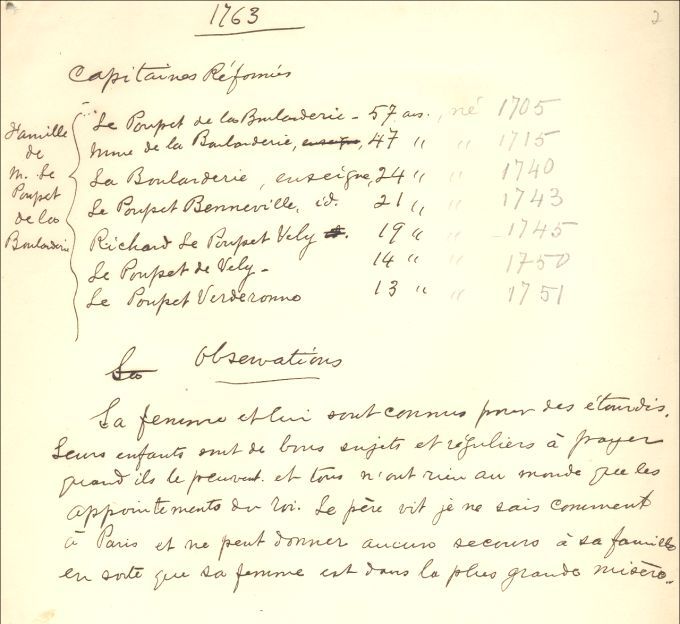 1763
2
Capitaines Réformés
Famille
de
M. Le
Poupet
de la
Boularderie
Le Poupet de la Boularderie - 57 ans., né 1705
Mme de la Boularderie, enseigne, 47 " " 1715
La Boularderie, enseigne, 24 " " 1740
Le Poupet Benneville, id. 21 " " 1743
Richard Le Poupet Vely 19 " " 1745
Le Poupet de Vely - 14 " " 1750
Le Poupet Verderonno 13 " " 1751
Sa Observations
Sa femme et lui sont connus pour des étourdis.
Leurs enfants sont de bons sujets et réguliers à payer
quand ils le peuvent. et tous n'ont rien au monde que les
appointements du roi. Le père vit je ne sais comment
à Paris et ne peut donner aucuns secours à sa famille
en sorte que sa femme est dans la plus grande misère.